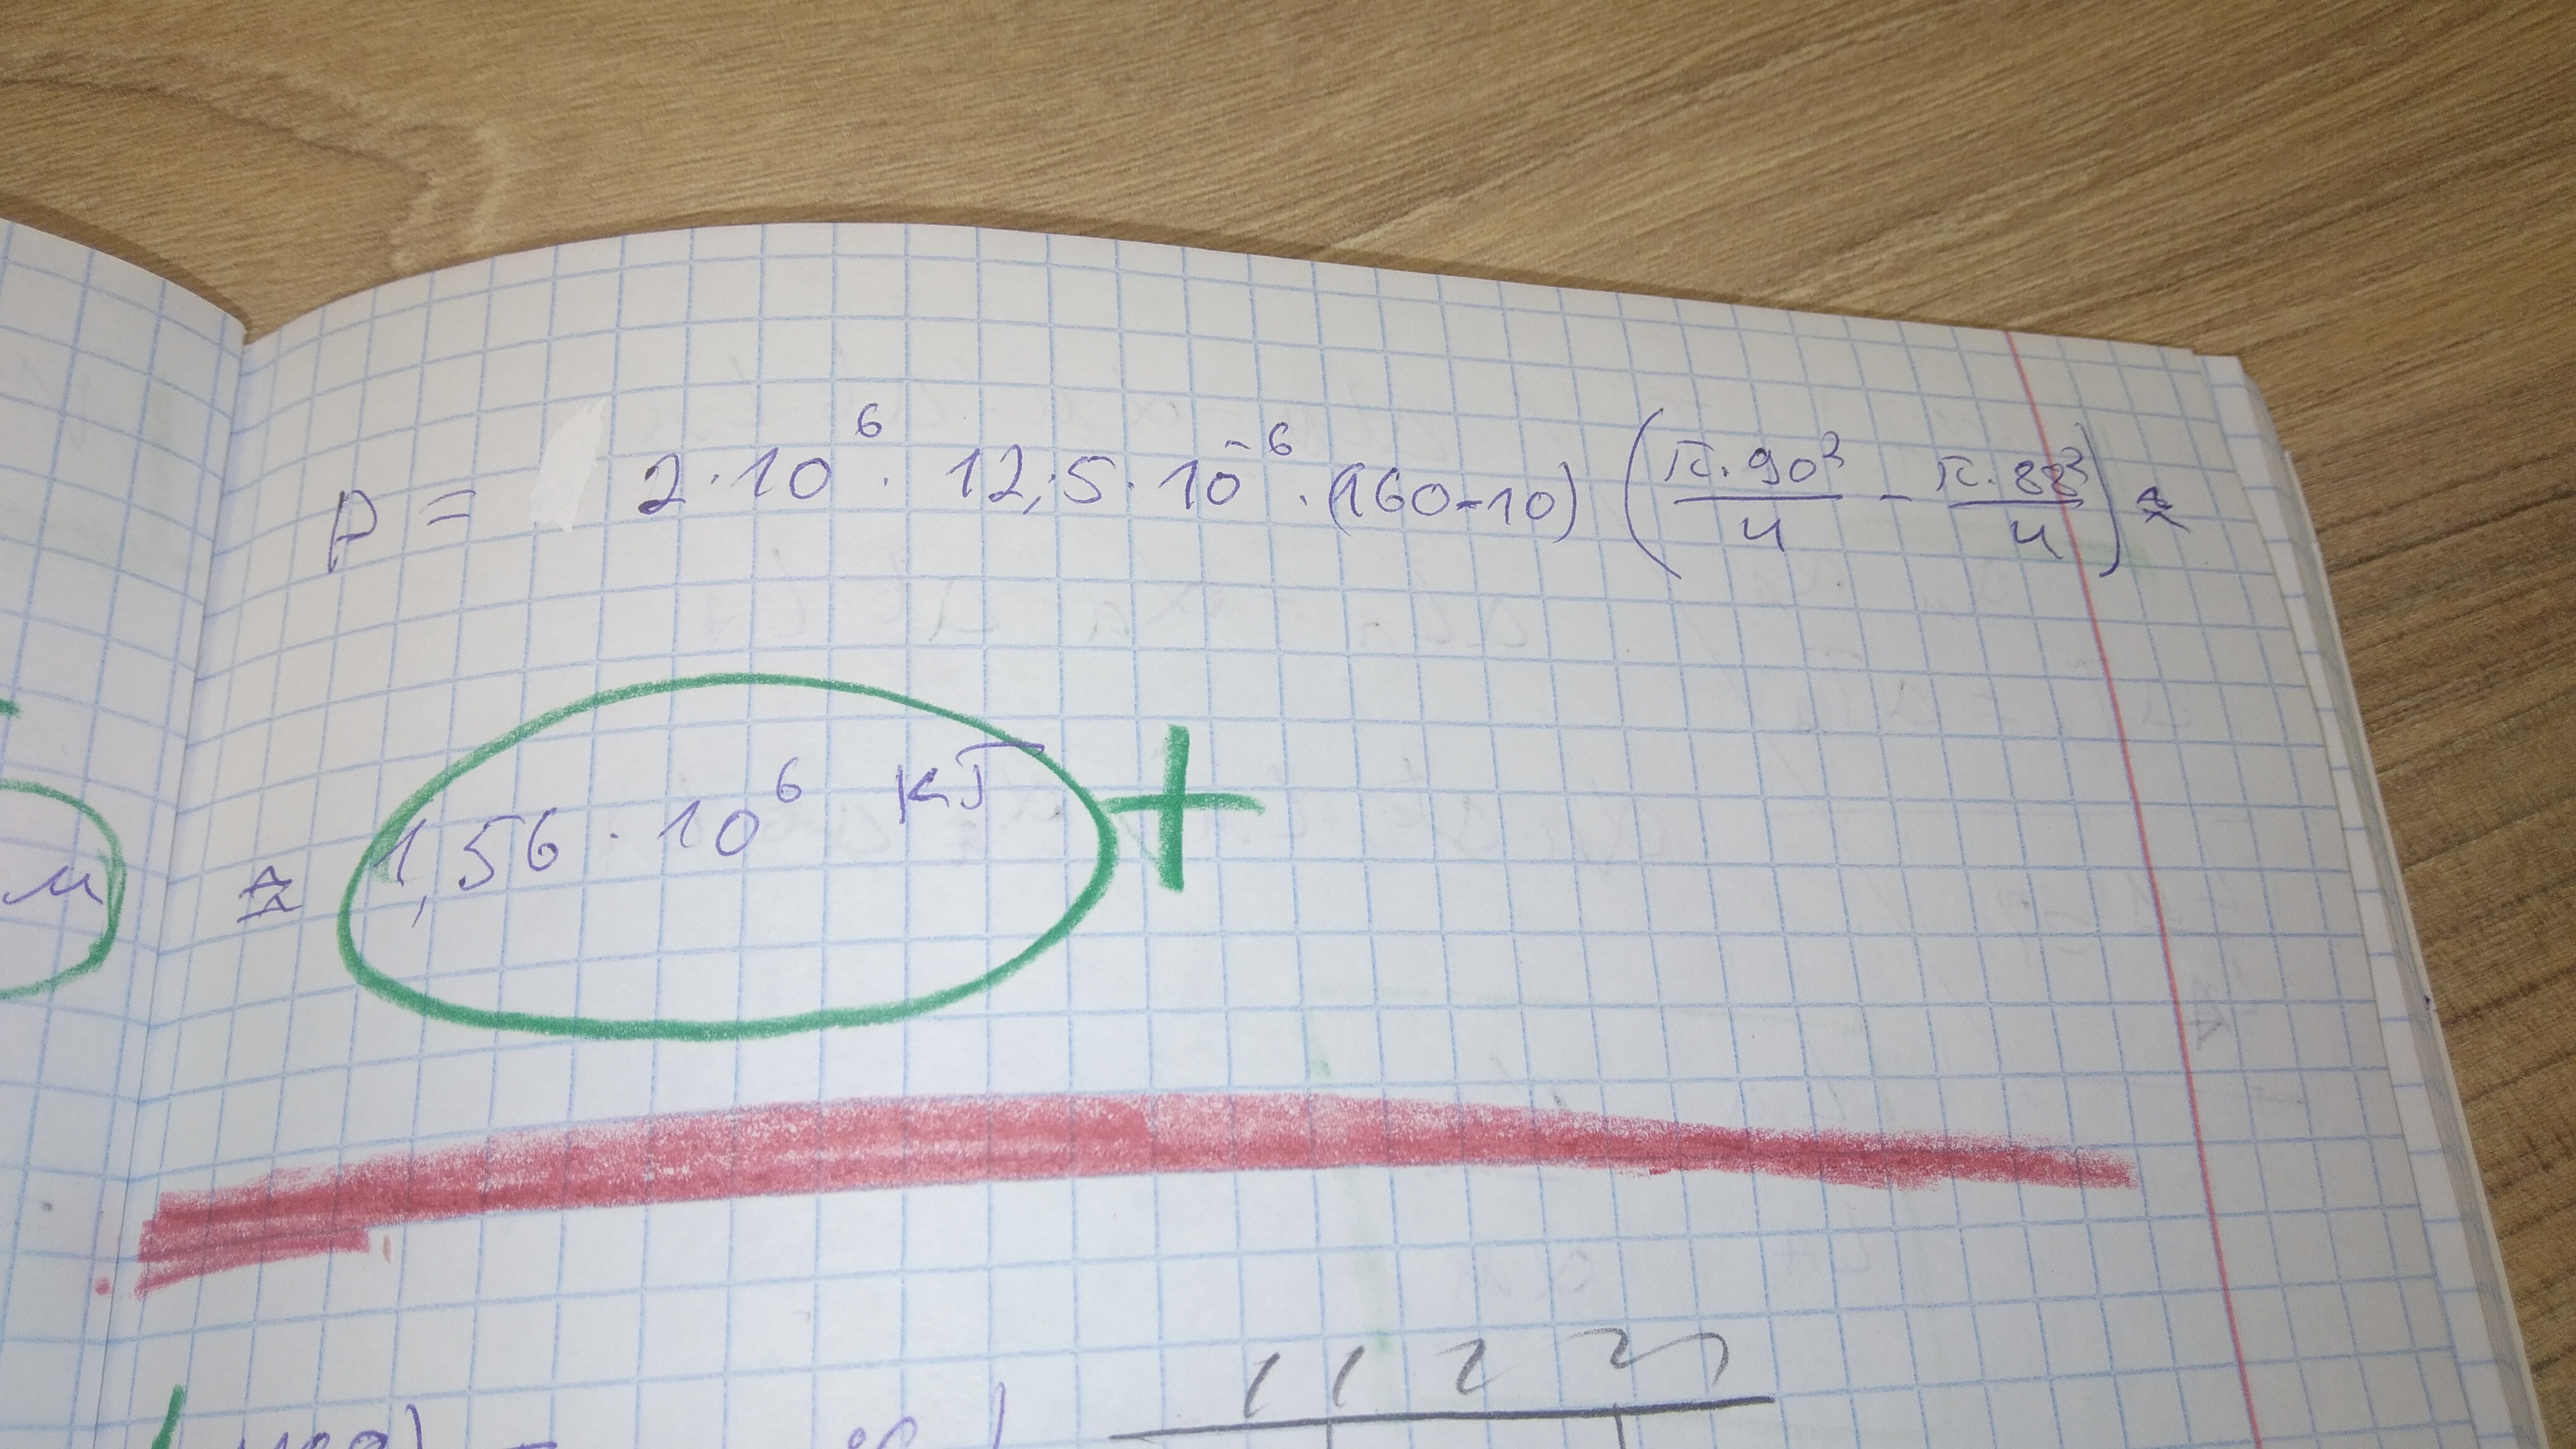 P = 2·10⁶ · 12,5·10⁻⁶ · (160-10) (π·90²/4 - π·88²/4) ≈
м ≈ 1,56 · 10⁶ кГ +
1 1 2 2